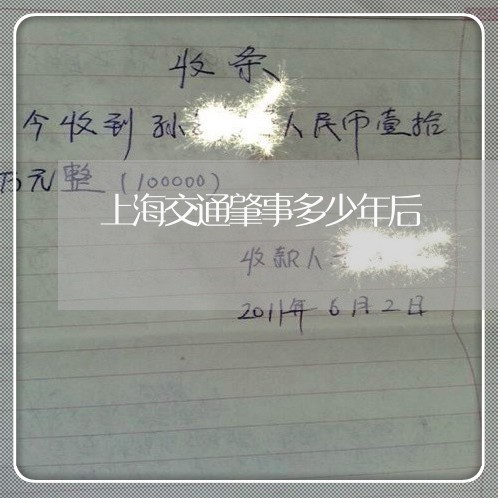 收条
今收到孙 人民币壹拾
万元整(100000)
上海交通肇事多少年后
收款人
2011年6月2日